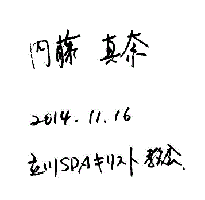 内藤 真奈
2014.11.16
立川SDAキリスト教会